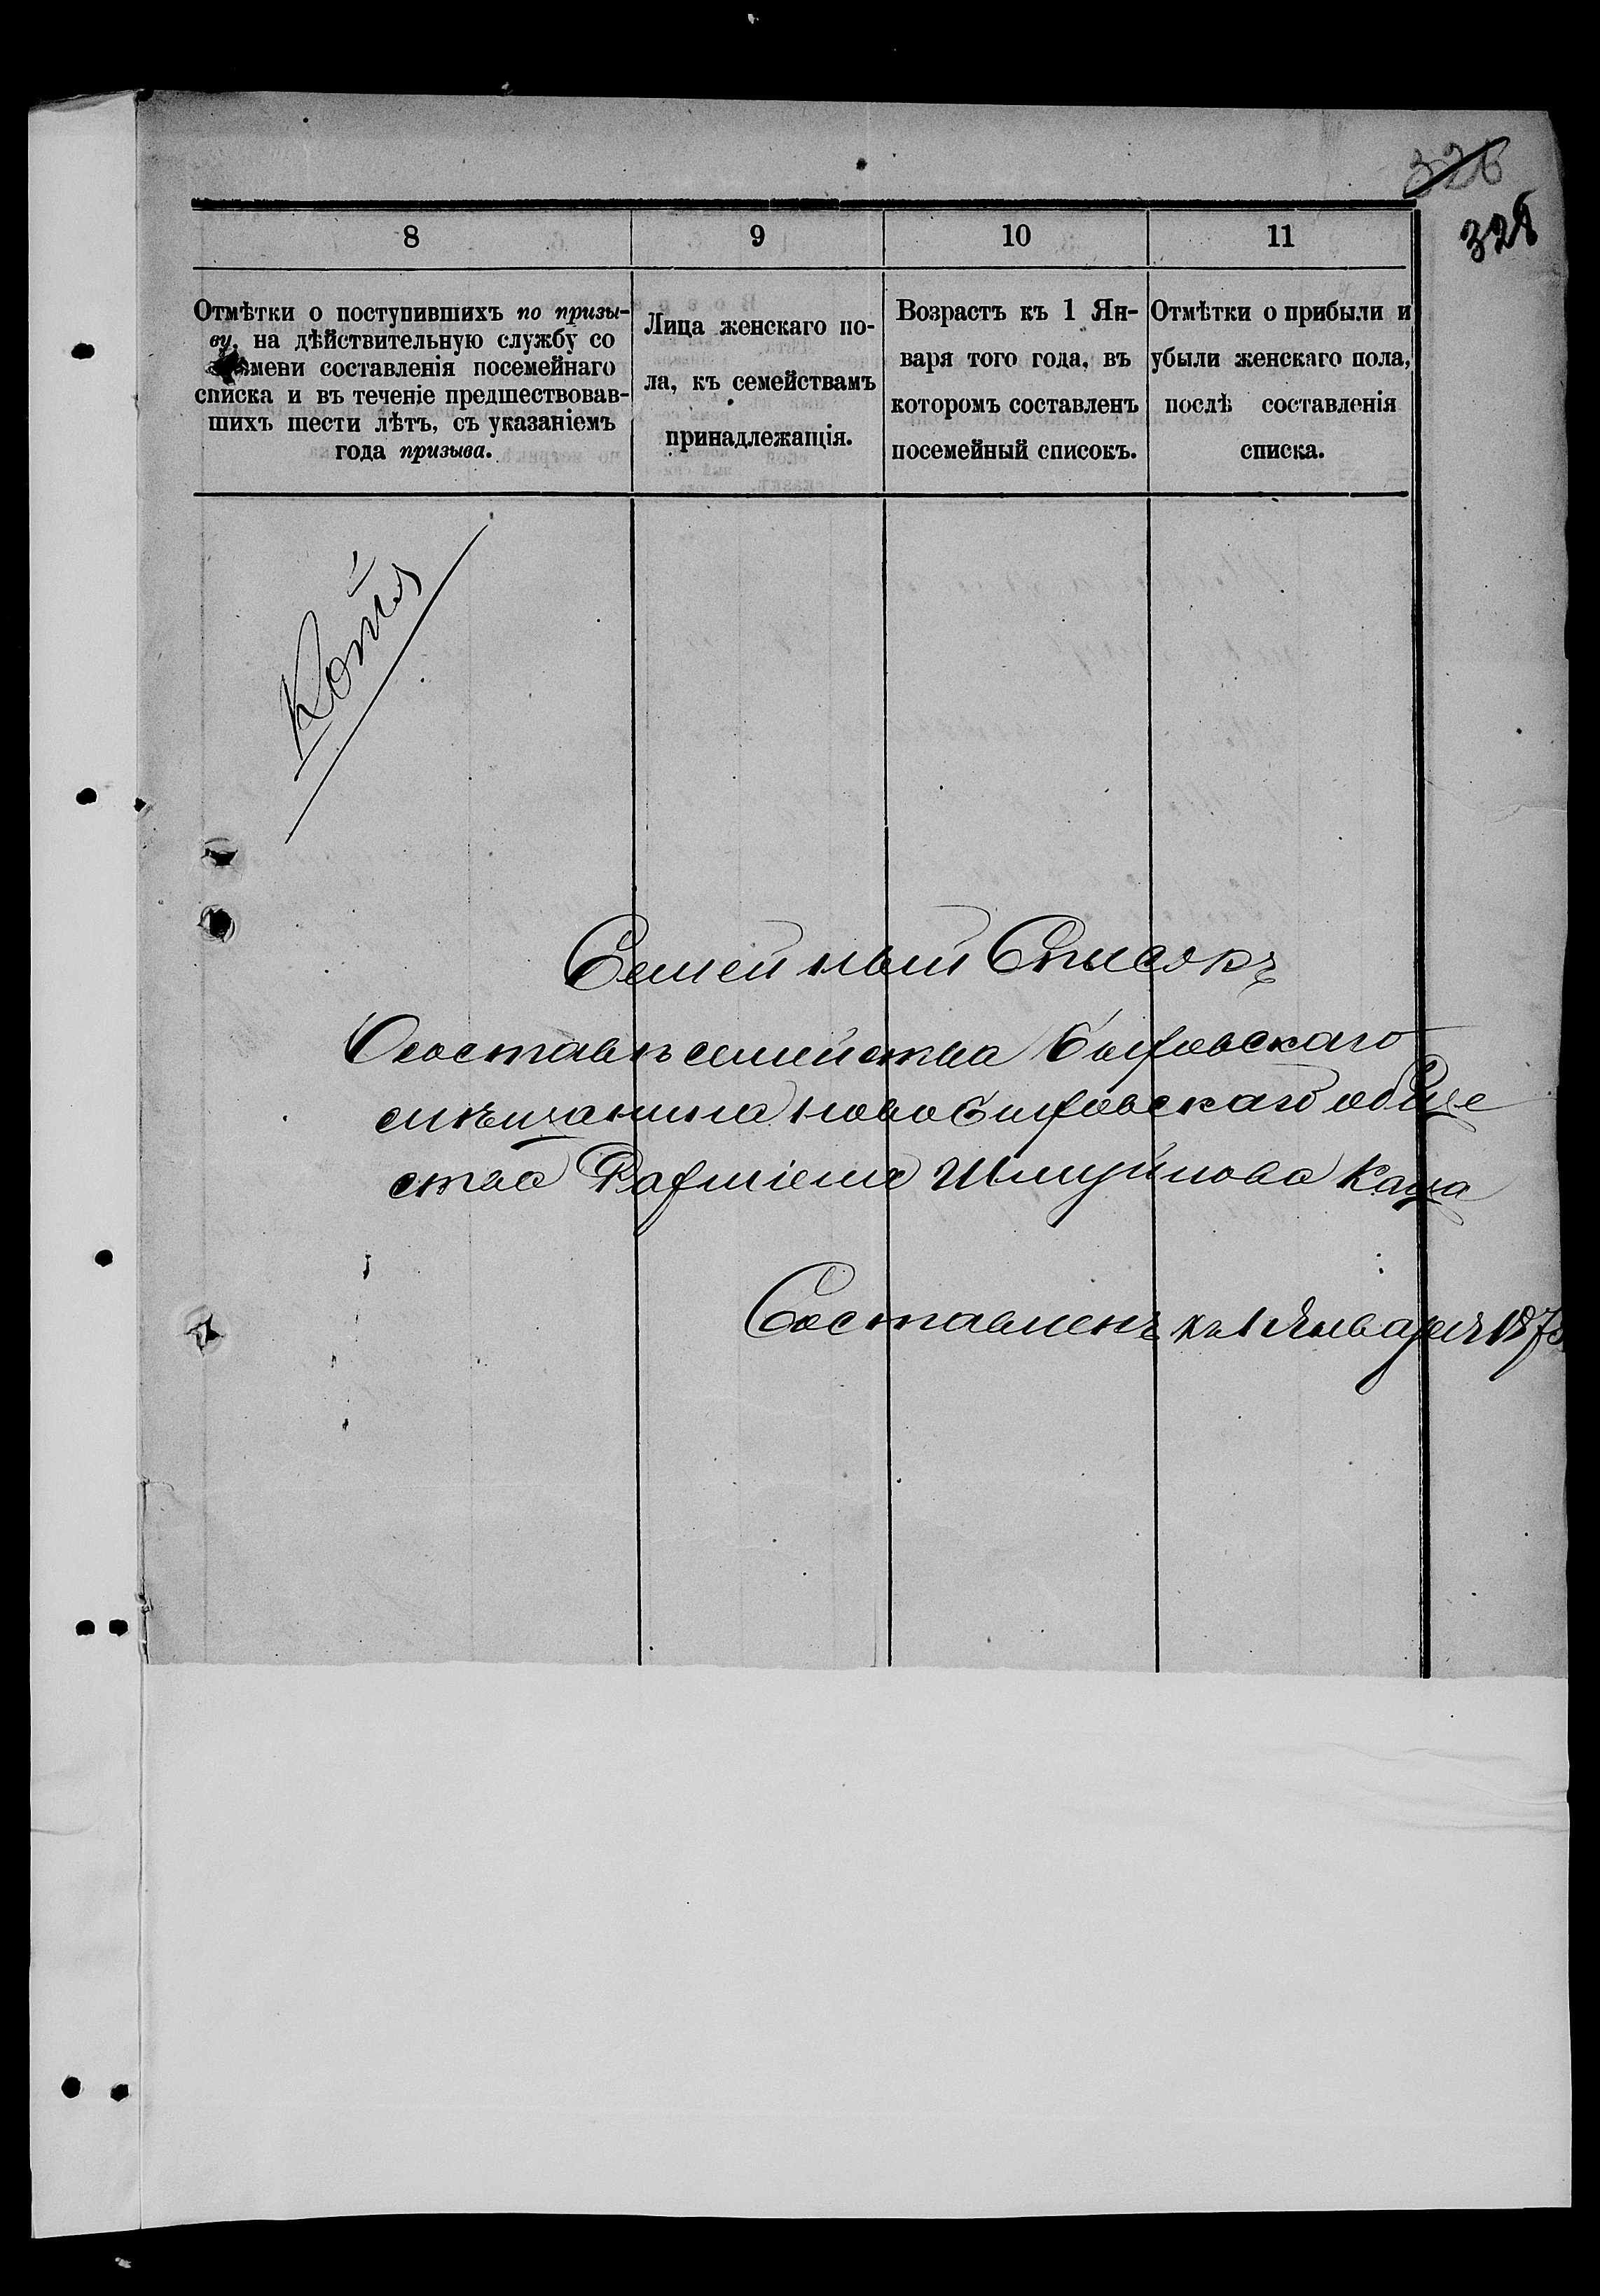 326
328
8 9 10 11
Отмѣтки о поступившихъ по призы-
ву, на дѣйствительную службу со
времени составленія посемейнаго
списка и въ теченіе предшествовав-
шихъ шести лѣтъ, съ указаніемъ
года призыва.
Лица женскаго по-
ла, къ семействамъ
принадлежащія.
Возрастъ къ 1 Ян-
варя того года, въ
которомъ составленъ
посемейный списокъ.
Отмѣтки о прибыли и
убыли женскаго пола,
послѣ составленія
списка.
Копія
Семейный Списокъ
О составѣ семейства
мѣщанина обще
ства Каца
Составленъ къ 1 Января 187